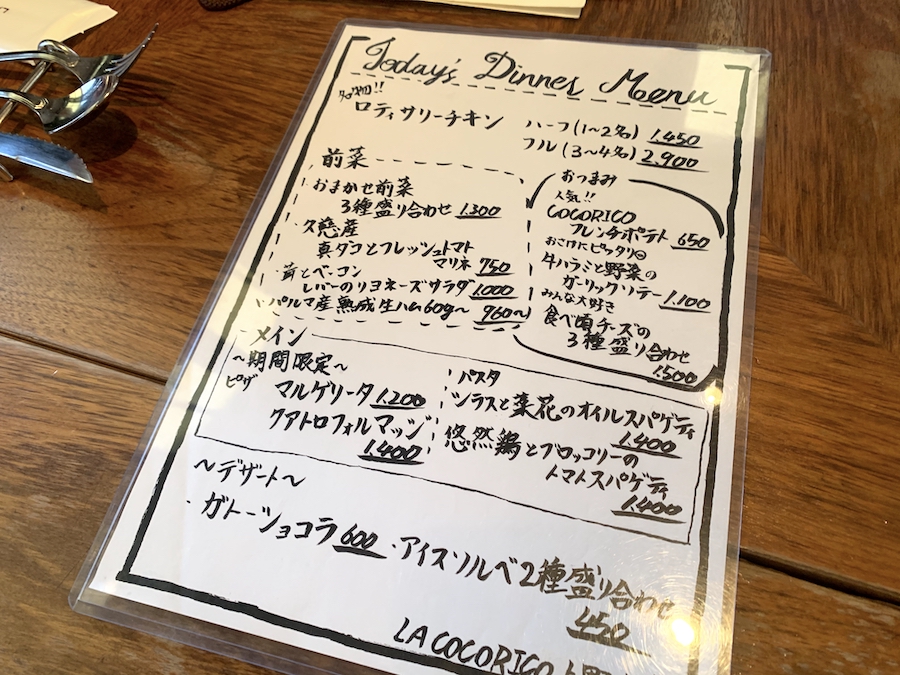 Today's Dinner Menu
名物!!
ロティサリーチキン ハーフ(1~2名) 1.450
フル(3~4名) 2.900
前菜
おまかせ前菜
3種盛り合わせ 1.300
・久慈産
真ダコとフレッシュトマト
マリネ 750
・茸とベーコン
レバーのリヨネーズサラダ 1.000
・パルマ産熟成生ハム60g~ 960~
おつまみ
人気!!
COCORICO
フレンチポテト 650
おさけにピッタリ
牛ハラミと野菜の
ガーリックソテー 1.100
みんな大好き
食べ頃チーズの
3種盛り合わせ
1.500
メイン
~期間限定~
ピザ
マルゲリータ 1.200
クアトロフォルマッジ
1.400
パスタ
シラスと菜花のオイルスパゲティ
1.400
悠然鶏とブロッコリーの
トマトスパゲティ
1.400
~デザート~
・ガトーショコラ 600 ・アイスソルベ2種盛り合わせ
450
LA COCORICO 上野